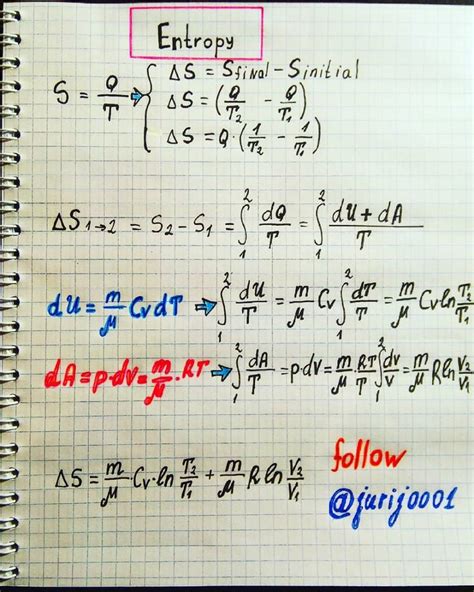 Entropy
S = Q/T ⇒ { ΔS = Sfinal - Sinitial
ΔS = (Q/T₂ - Q/T₁)
ΔS = Q·(1/T₂ - 1/T₁)
ΔS₁→₂ = S₂ - S₁ = ∫₁² dQ/T = ∫₁² (dU + dA)/T
dU = m/μ CvdT ⇒ ∫₁² dU/T = m/μ Cv ∫₁² dT/T = m/μ Cv ln T₂/T₁
dA = p·dv = m/μ · RT ⇒ ∫₁² dA/T = p·dv = m/μ · RT/T ∫₁² dv/v = m/μ R ln V₂/V₁
ΔS = m/μ Cv·ln T₂/T₁ + m/μ R ln V₂/V₁
follow
@jurij0001